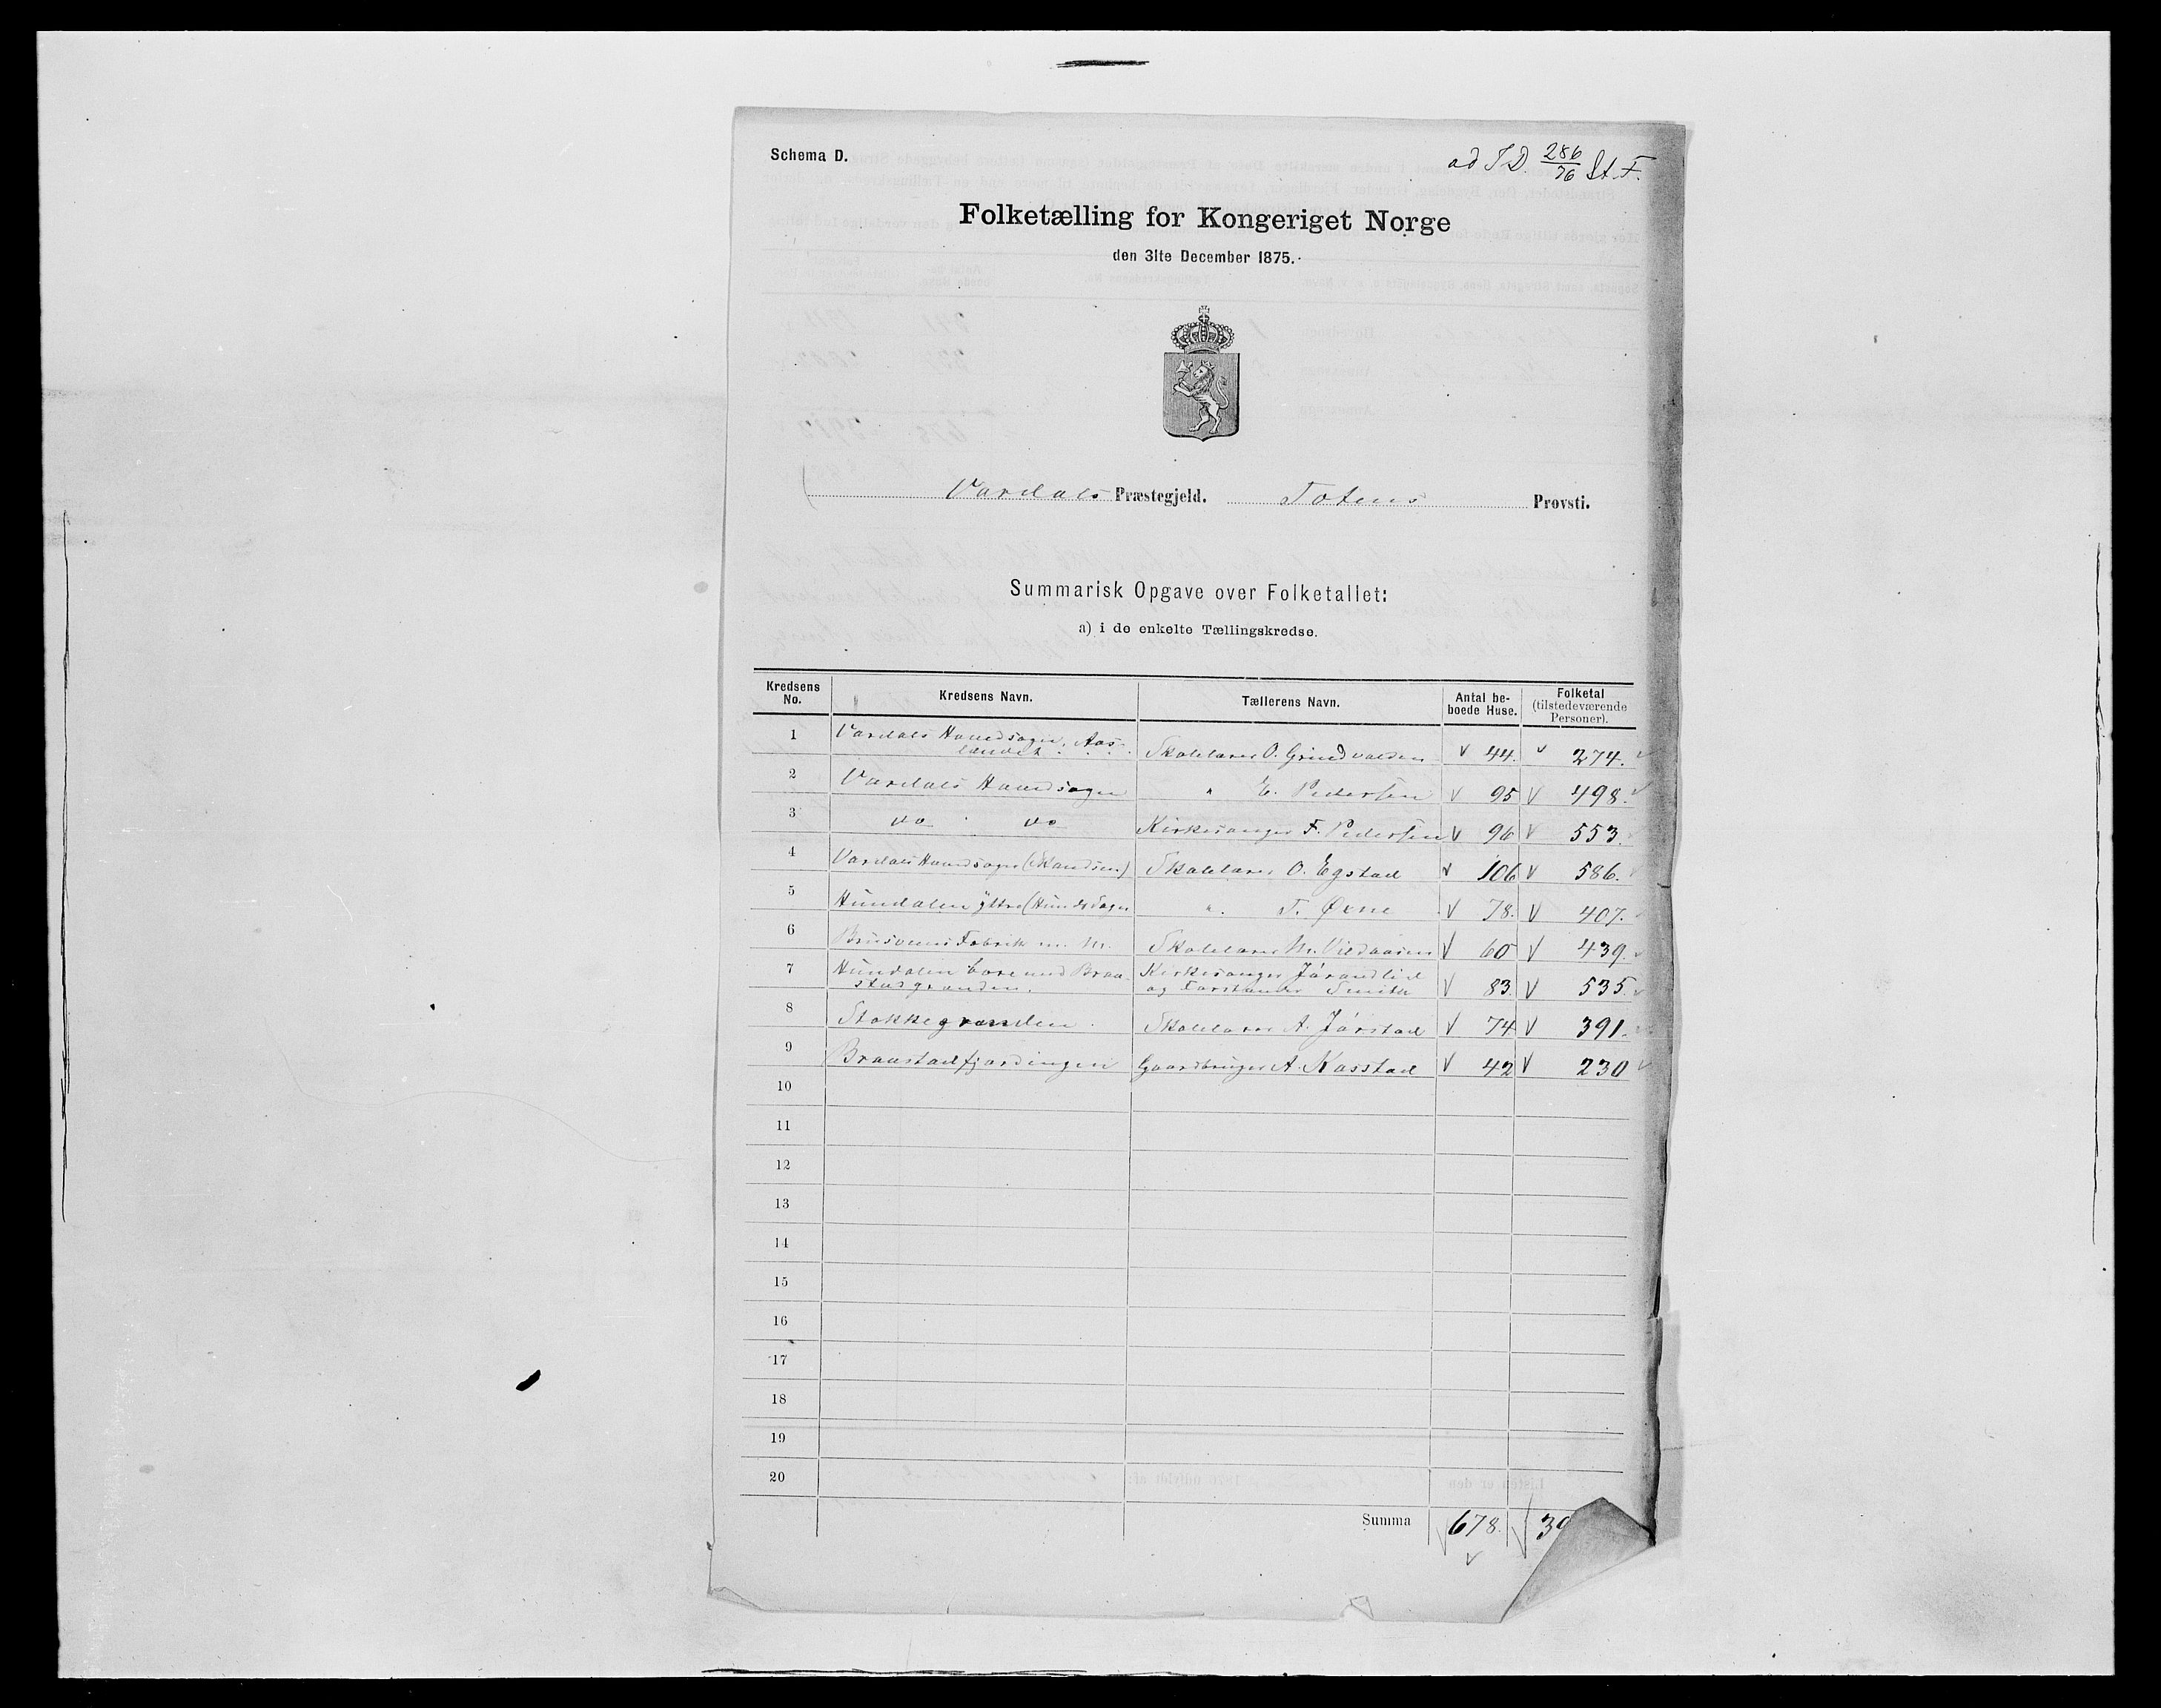 Schema D.
ad J.D. 286/76 St. F.
Folketælling for Kongeriget Norge
den 31te December 1875.
Vardals Præstegjeld. Totens Provsti.
Summarisk Opgave over Folketallet:
a) i de enkelte Tællingskredse.
Kredsens No. Kredsens Navn. Tællerens Navn. Antal beboede Huse. Folketal (tilstedeværende Personer).
1 Vardals Hovedsogn, Aaslandet Skolelærer O. Grindvolden 44. 274.
2 Vardals Hovedsogn " E. Pedersen 95 498.
3 do do Kirkesanger F. Pedersen 96 553.
4 Vardals Hovedsogn (Skandsen) Skolelærer O. Egstad 106 586.
5 Hundalen yttre (Hunds Sogn " T. Øvne 78. 407.
6 Brusveens Fabrik m. m. Skolelærer M. 60 439.
7 Hundalen øvre med Braastadgranden. Kirkesanger Jørandlid og Forstander Smith 83. 535.
8 Stokkegranden Skolelærer A. Jørstad 74 391.
9 Braastadfjerdingen Gaardbruger A. Kasstad 42 230
10
11
12
13
14
15
16
17
18
19
20
Summa 678. 39